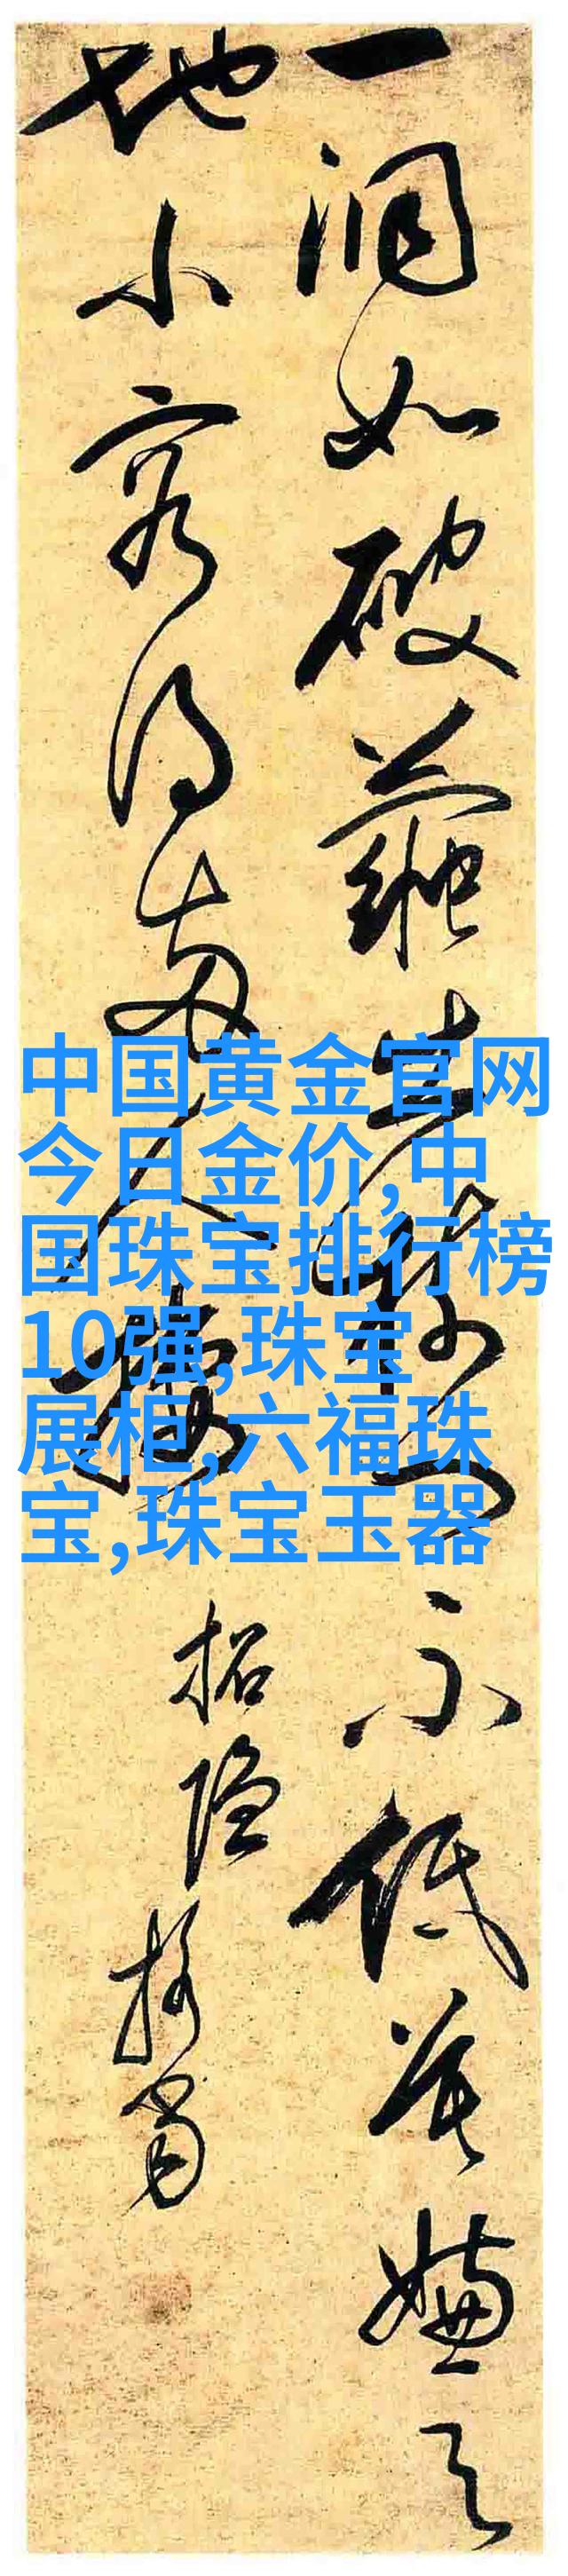 一洞如破不低莫嫌天
地小容得兩人
招隐
中国黄金官网
今日金价,中
国珠宝排行榜
10强,珠宝
展柜,六福珠
宝,珠宝玉器